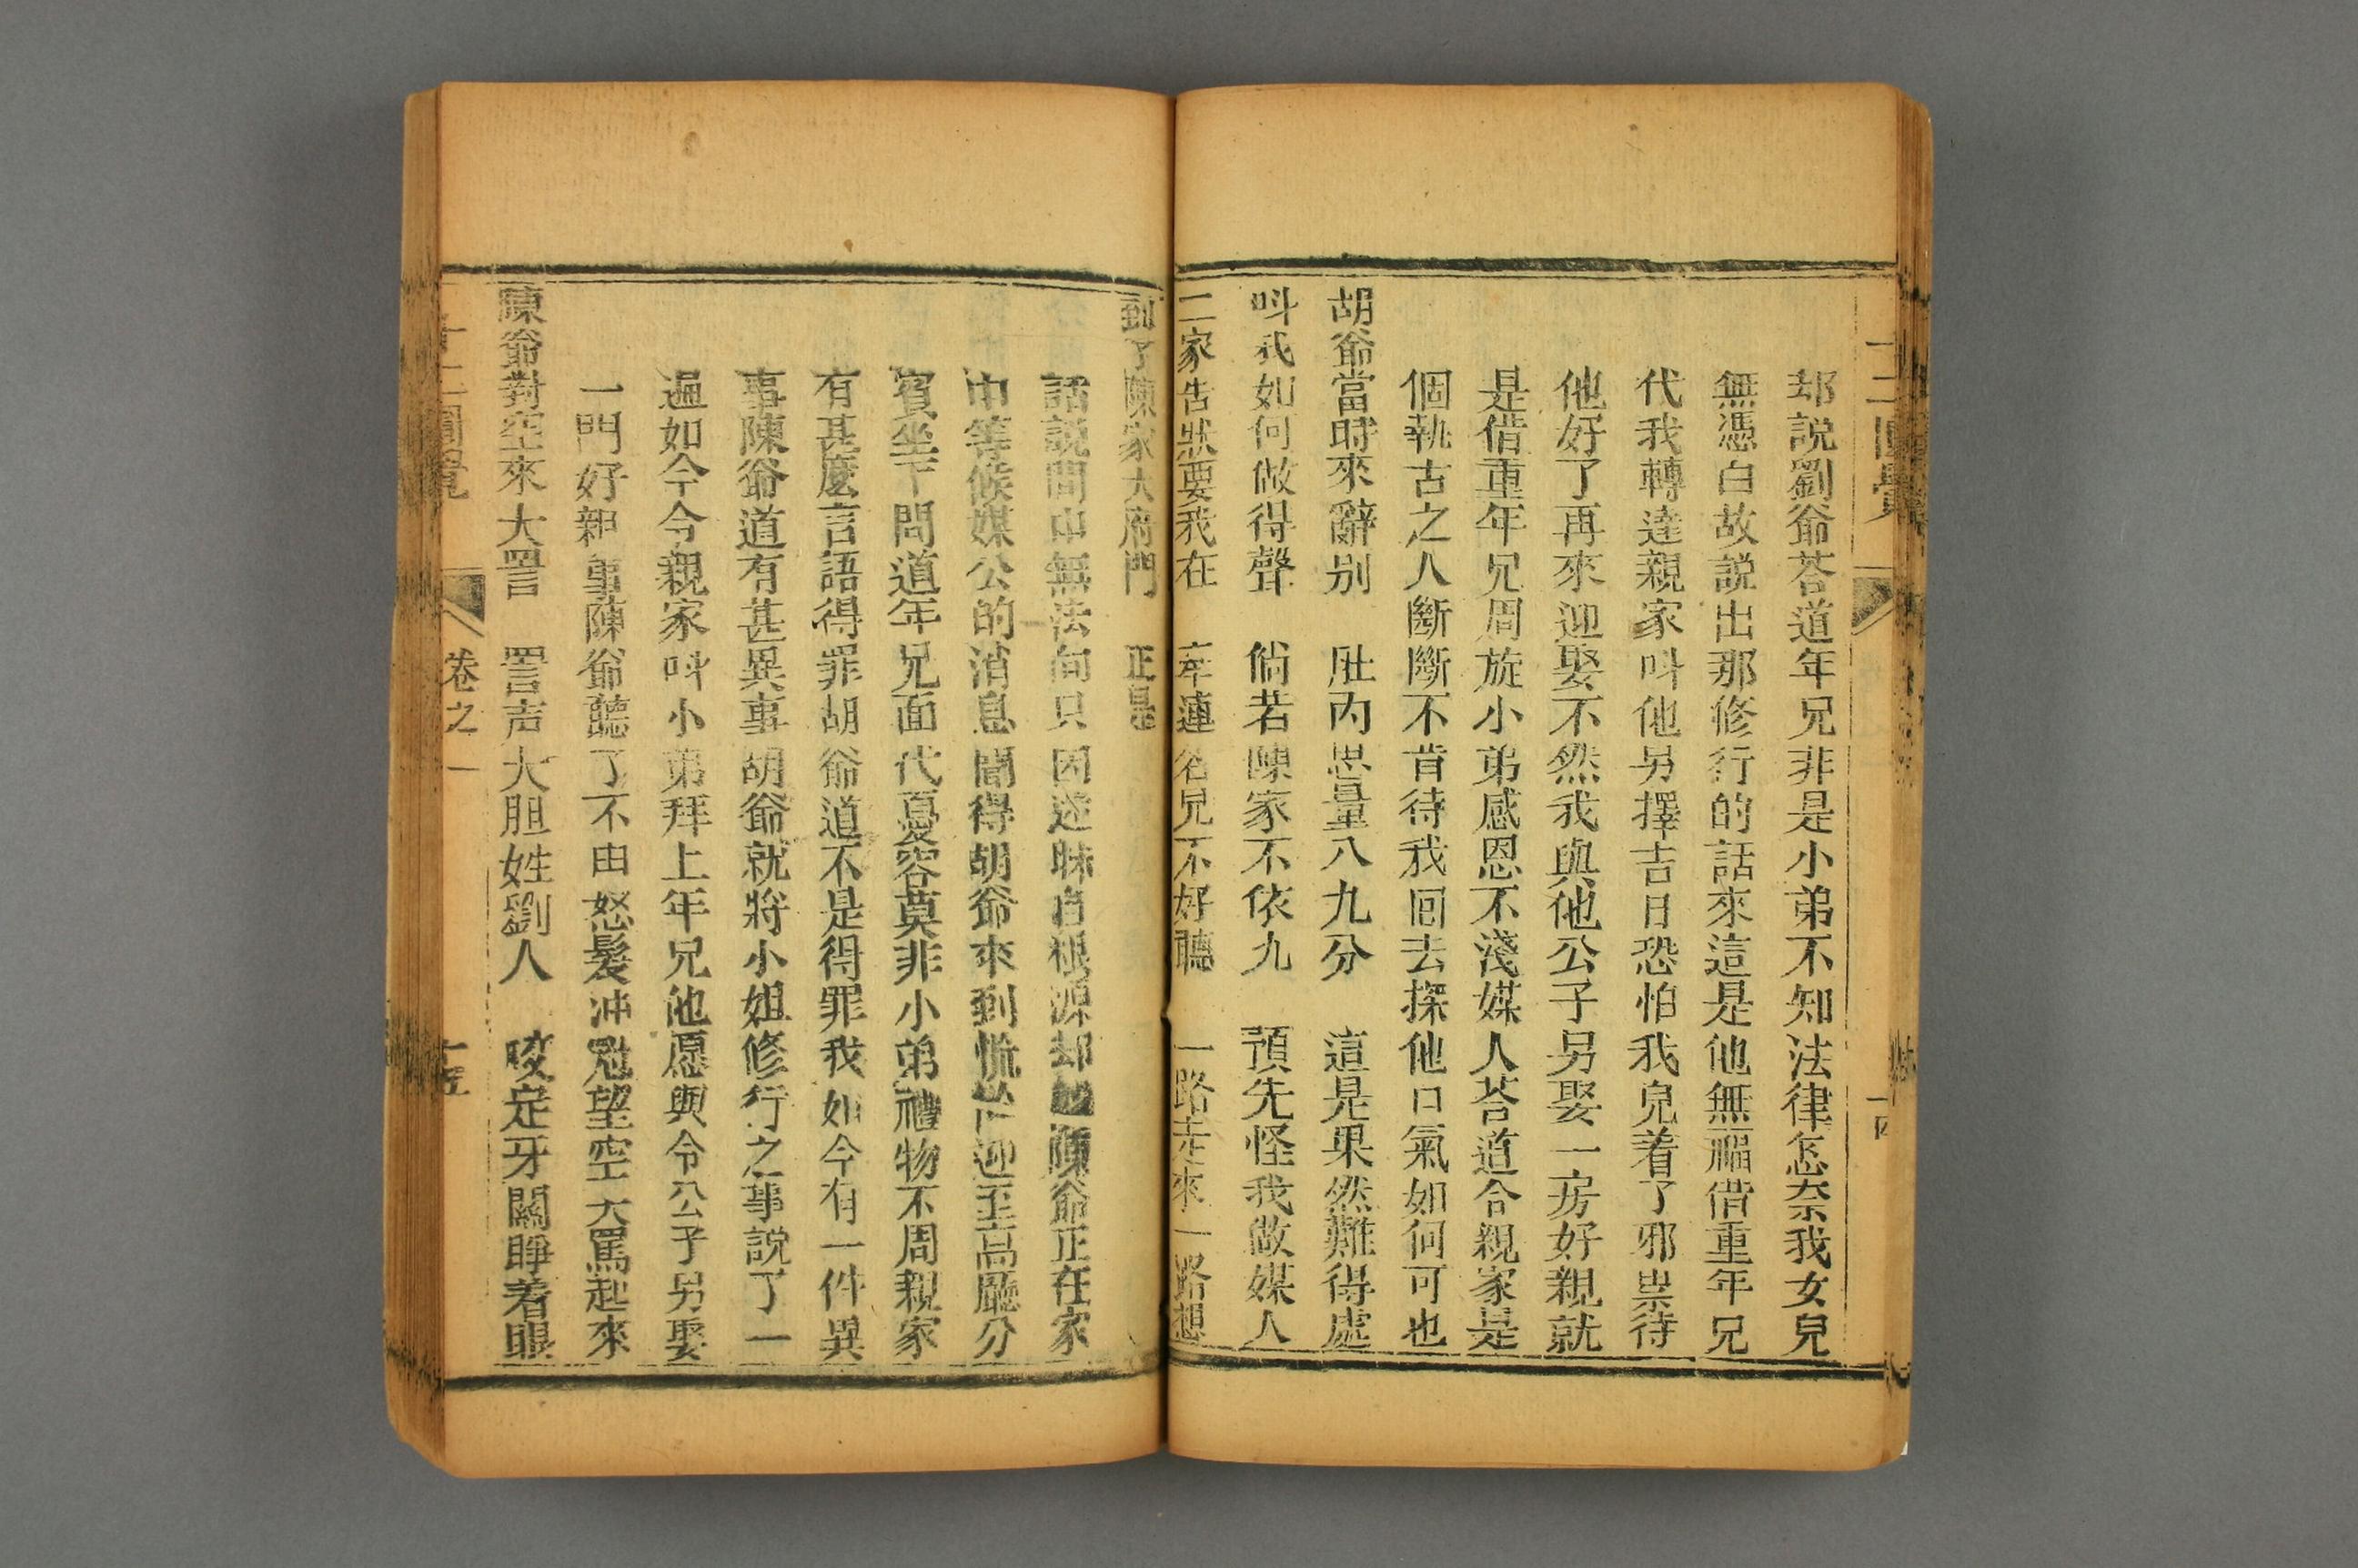 十二圓覺
十四
却説劉爺荅道年兄非是小弟不知法律怎奈我女兒
無憑白故説出那修行的話來這是他無福偕重年兄
代我轉達親家呌他另擇吉日恐怕我兒着了邪祟待
他好了再來迎娶不然我與他公子另娶一房好親就
是偕重年兄周旋小弟感恩不淺媒人荅道令親家是
個執古之人斷斷不肯待我回去探他口氣如何可也
胡爺當時來辭别 肚内思量八九分 這是果然難得處
呌我如何做得聲 倘若陳家不依九 預先怪我做媒人
二家告狀要我在 牽連名兒不好聽 一路走來一路想
到了陳家大府門 正是
話説間中無法向只因迷昧自根源却説陳爺正在家
中等候媒公的消息聞得胡爺來到慌忙迎至高廳分
賓坐下問道年兄面代憂容莫非小弟禮物不周親家
有甚麽言語得罪胡爺道不是得罪我如今有一件異
事陳爺道有甚異事胡爺就將小姐修行之事説了一
遍如今令親家呌小弟拜上年兄他愿與令公子另娶
一門好親事陳爺聽了不由怒髮冲冠望空大罵起來
陳爺對空來大罟 罟声大胆姓劉人 咬定牙關睜着眼
十二圓覺 卷之一 十五